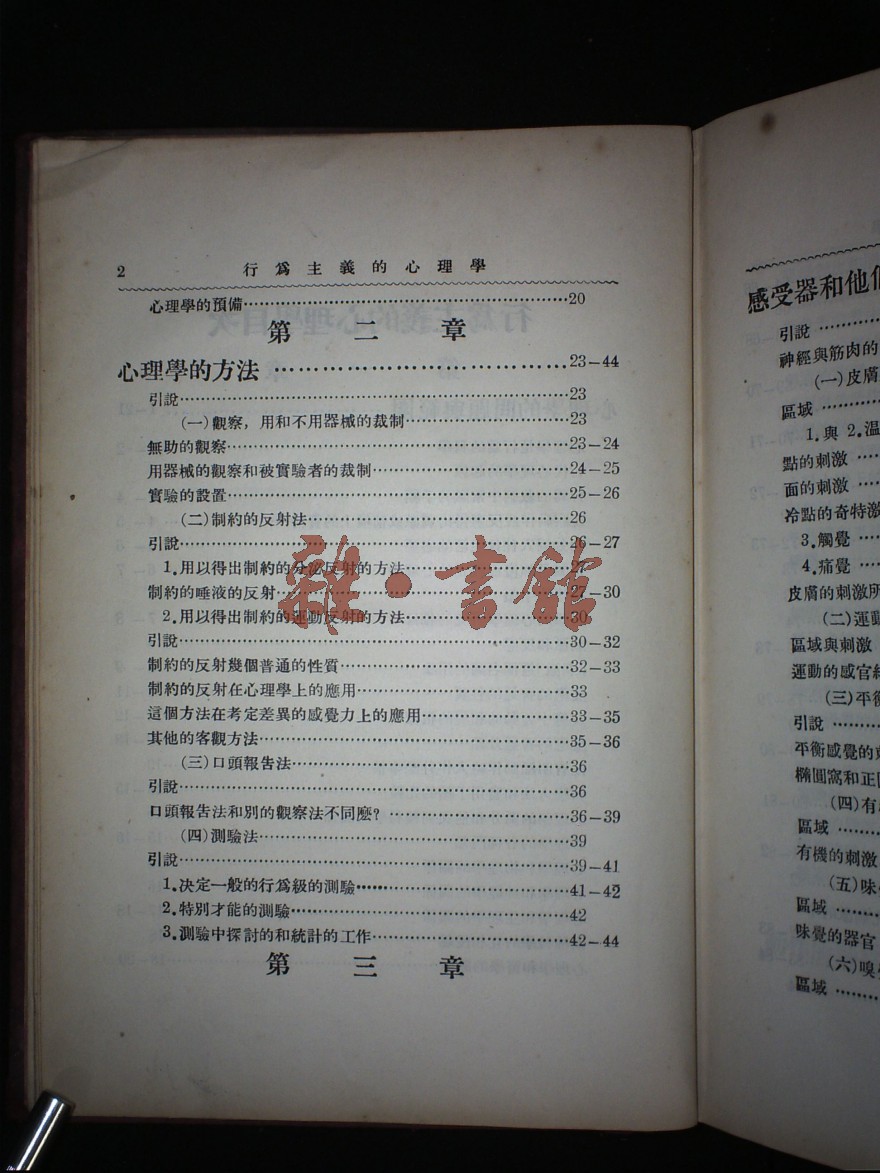 2 行爲主義的心理學
心理學的預備……20
第二章
心理學的方法……23—44
引說……23
(一)觀察,用和不用器械的裁制……23
無助的觀察……23—24
用器械的觀察和被實驗者的裁制……24—25
實驗的設置……25—26
(二)制約的反射法……26
引說……26—27
1.用以得出制約的分泌反射的方法……27
制約的唾液的反射……27—30
2.用以得出制約的運動反射的方法……30
引說……30—32
制約的反射幾個普通的性質……32—33
制約的反射在心理學上的應用……33
這個方法在考定差異的感覺力上的應用……33—35
其他的客觀方法……35—36
(三)口頭報告法……36
引說……36
口頭報告法和別的觀察法不同麼?……36—39
(四)測驗法……39
引說……39—41
1.決定一般的行爲級的測驗……41—42
2.特別才能的測驗……42
3.測驗中探討的和統計的工作……42—44
第三章
雜·書館
感受器和他
引說……
神經與筋肉的
(一)皮膚
區域……
1.與2.溫
點的刺激……
面的刺激……
冷點的奇特激
3.觸覺……
4.痛覺……
皮膚的刺激所
(二)運動
區域與刺激
運動的感官
(三)平衡
引說……
平衡感覺的
橢圓窩和正
(四)有
區域……
有機的刺激
(五)味
區域……
味覺的器官
(六)嗅
區域……